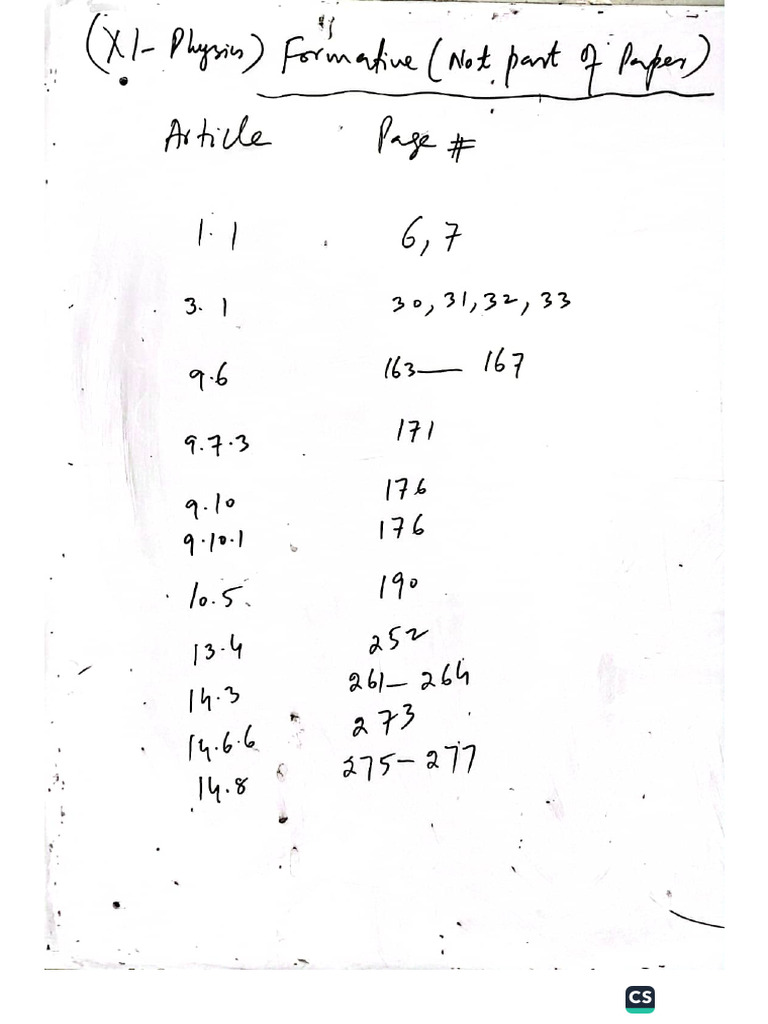 (XI- Physics) Formative (Not part of Paper)
Article Page #
1.1 6, 7
3.1 30, 31, 32, 33
9.6 163 — 167
9.7.3 171
9.10 176
9.10.1 176
10.5 190
13.4 252
14.3 261 — 264
14.6.6 273
14.8 275 - 277
CS